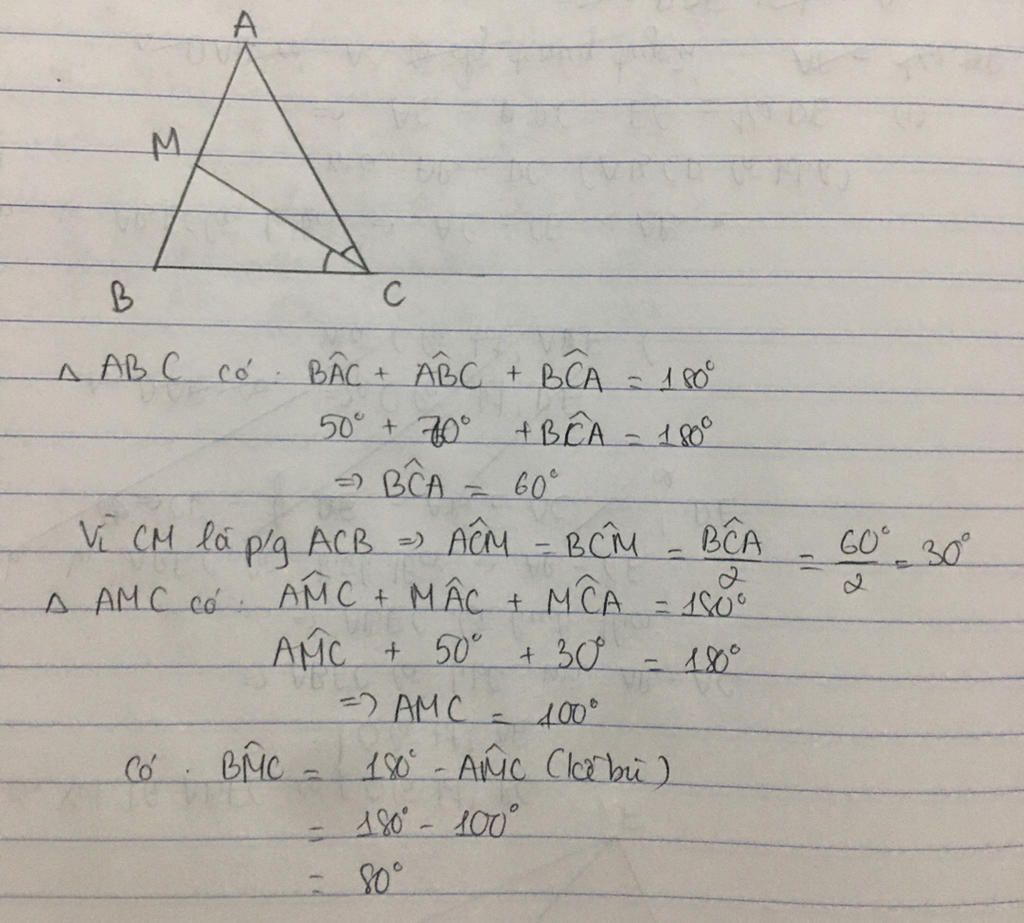 A
M
B
C
Δ ABC có: BÂC + AB̂C + BĈA = 180°
50° + 70° + BĈA = 180°
=> BĈA = 60°
Vì CM là p/g ACB => AĈM = BĈM = BĈA/2 = 60°/2 = 30°
Δ AMC có: AM̂C + MÂC + MĈA = 180°
AM̂C + 50° + 30° = 180°
=> AMC = 100°
Có: BM̂C = 180° - AM̂C (kề bù)
= 180° - 100°
= 80°